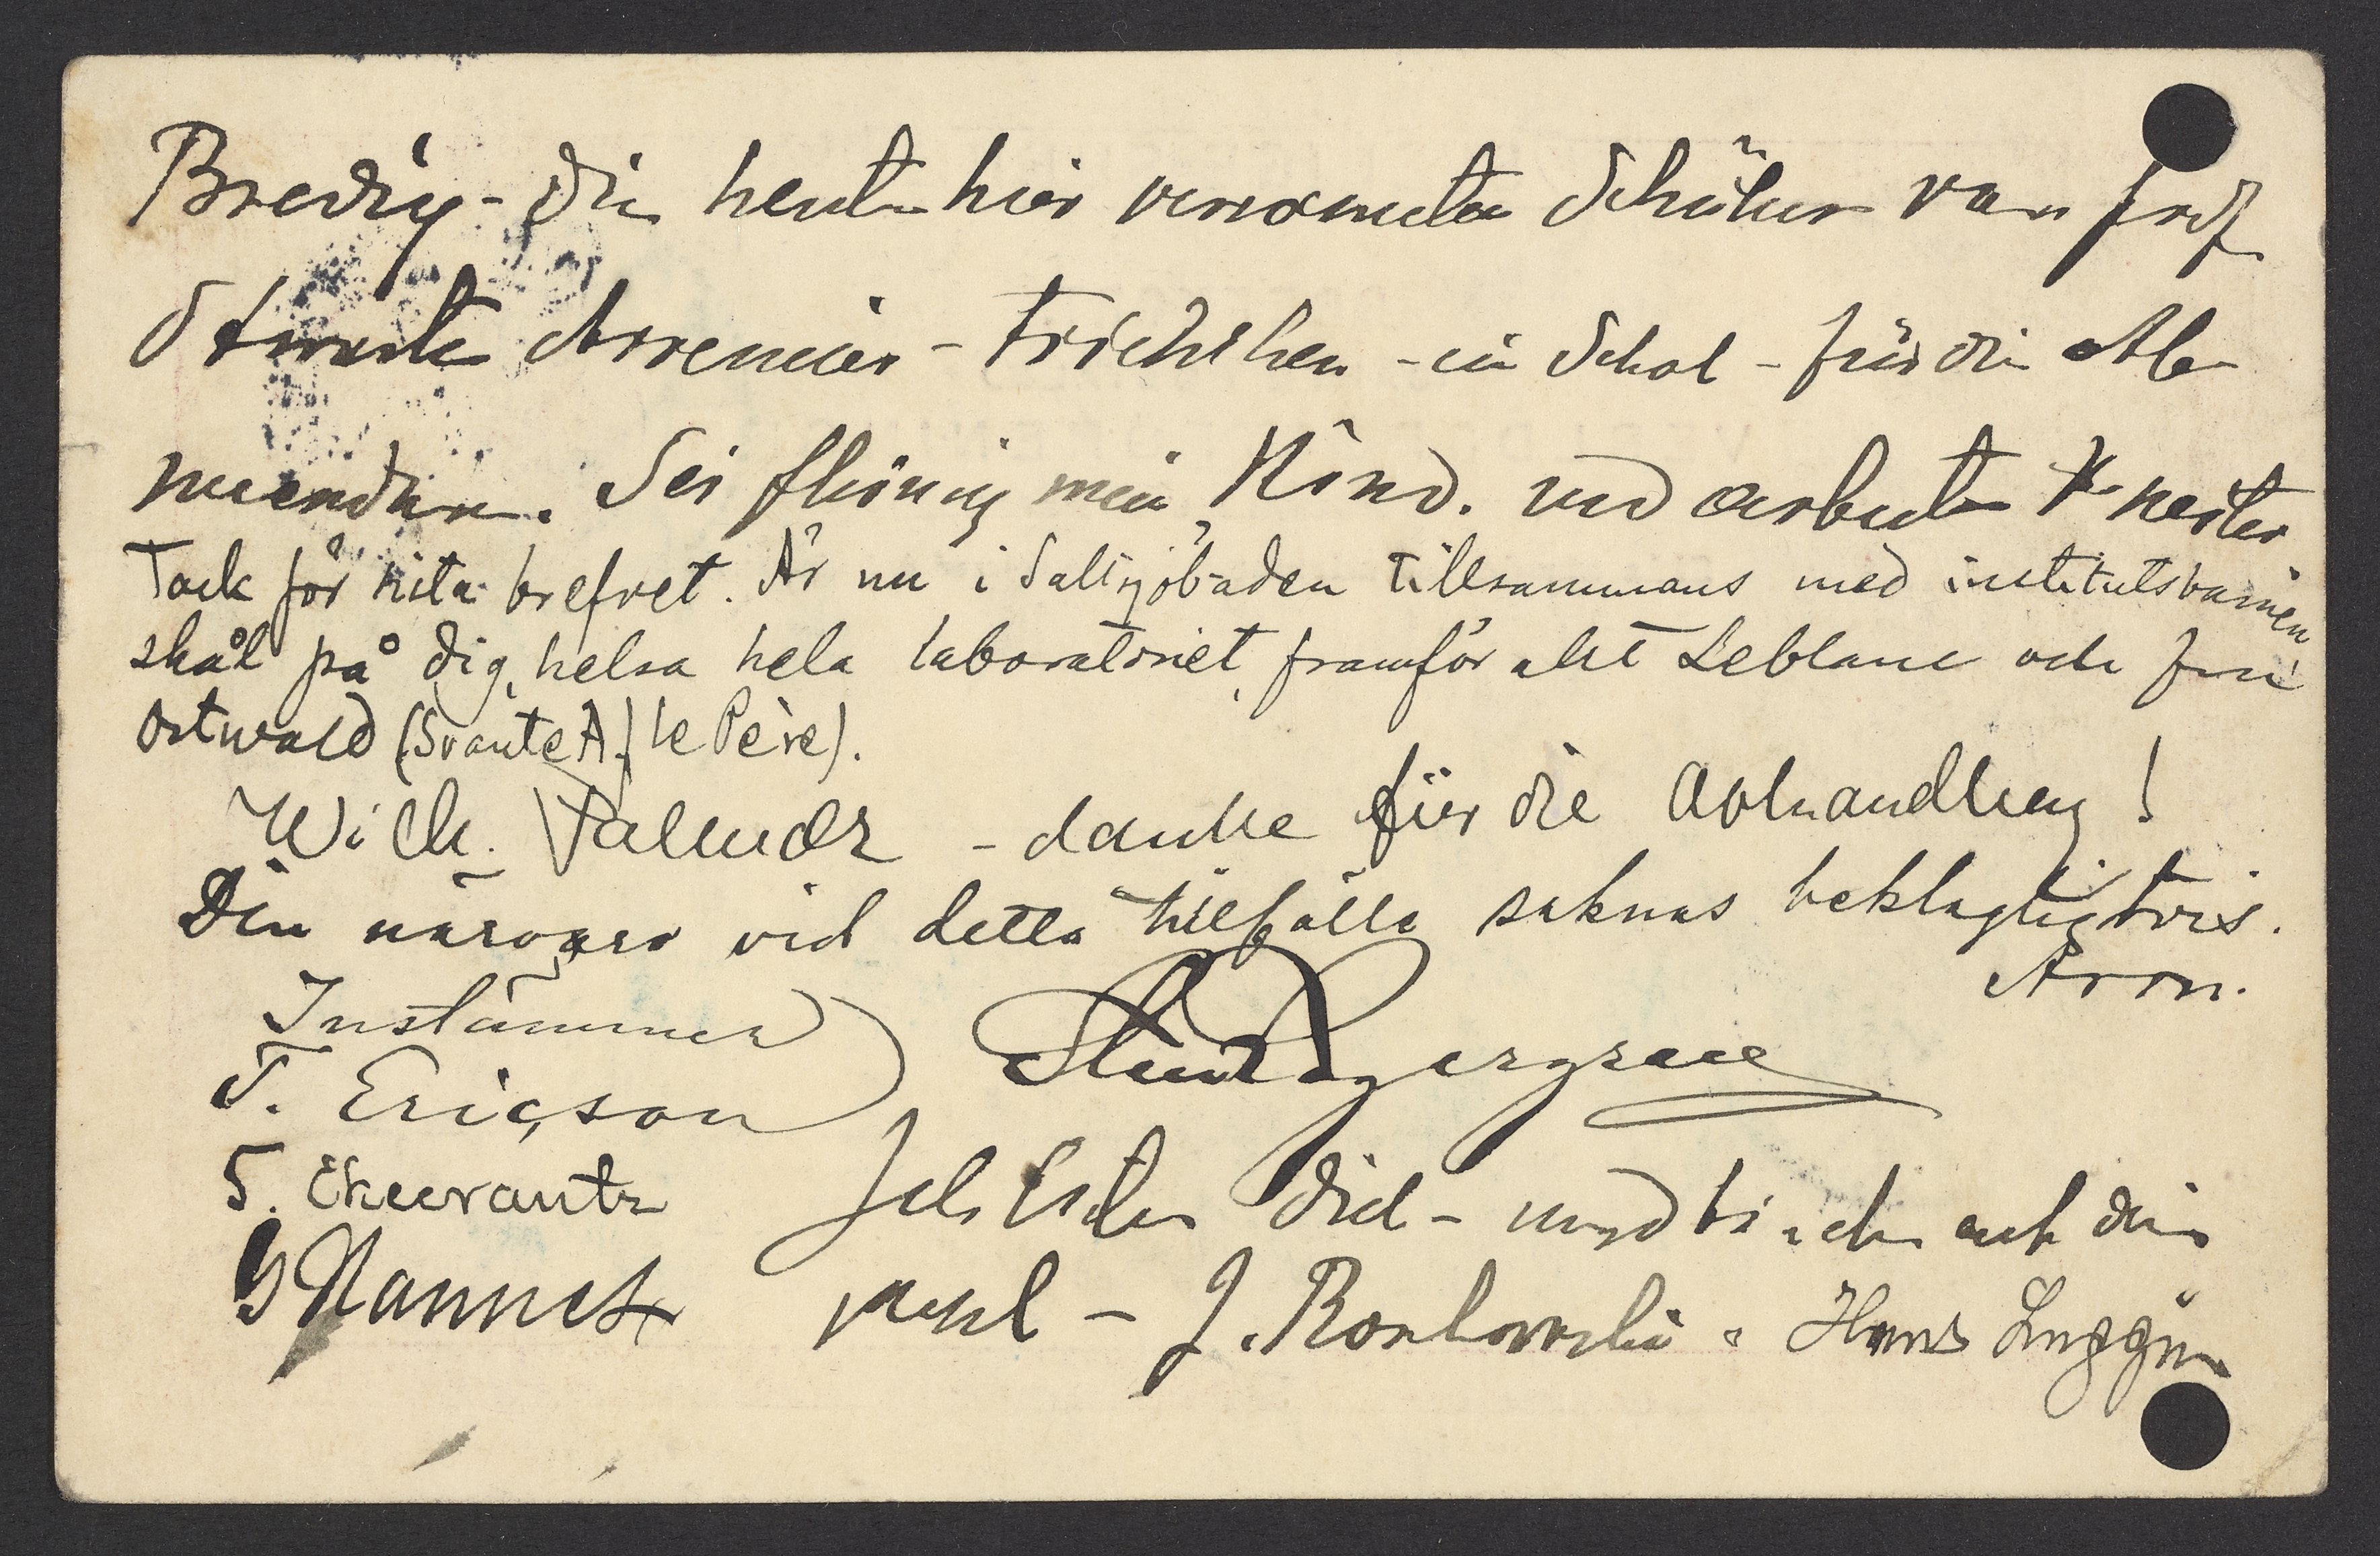 Bredig - Die heute hier versamelten Schüler von Prof
Swante Arrenius - trinken - ein Schol - für die Ab
wesenden. Sei fleissig mein Kind. und arbeite
Tack för sista brefvet. Är nu i Saltsjöbaden tillsammans med institutsvännen
skål på dig, helsa hela laboratoriet, framför allt Leblanc och fru
Ostwald (Svante A. le Père).
Wilh. Palmær - danke für die Abhandlung!
Din närvaro vid detta tillfälle saknas beklagligtvis.
Arrn.
Instämmer
T. Ericson
S. Ekecrantz
Ich liebe Dich - und trinke auf dein
J. Roszkowski. Hans Euggin